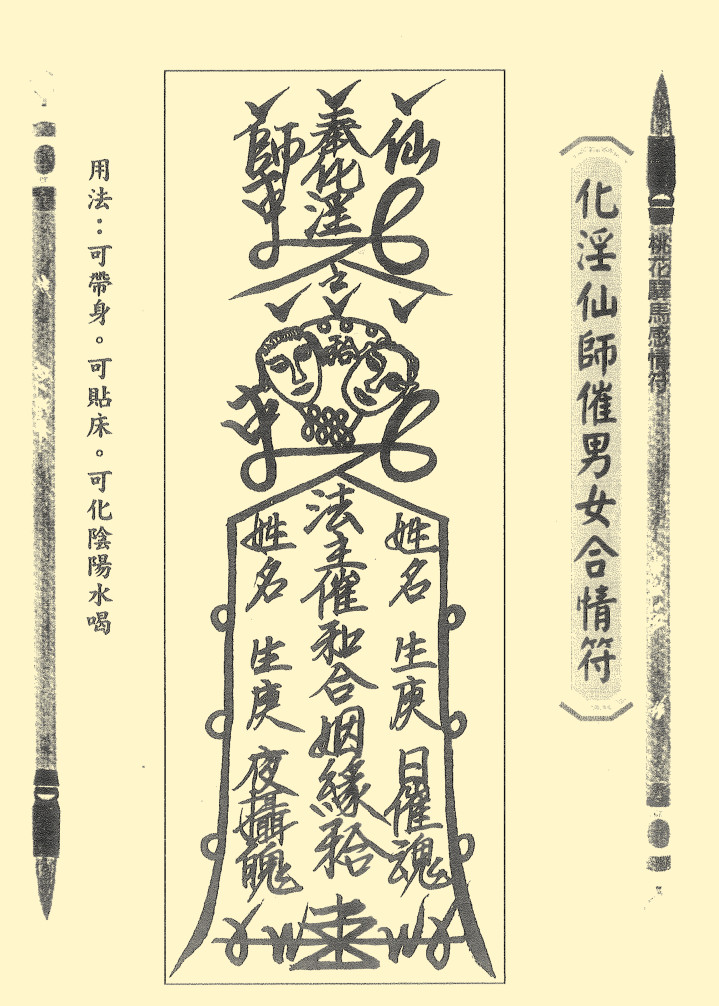 桃花驛馬感情符
化淫仙師催男女合情符
仙
奉化淫
師
姓名 生庚 日催魂
法主催和合姻緣
姓名 生庚 夜攝魄
用法：可帶身。可貼床。可化陰陽水喝